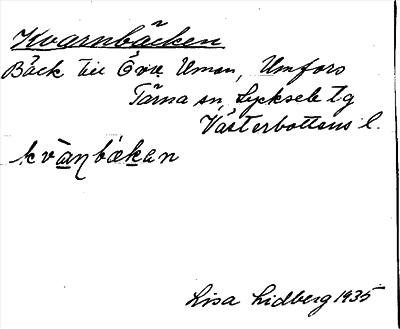 Kvarnbäcken
Bäck till Övre Uman, Umfors
Tärna sn, Lycksele lg
Västerbottens l.
kvàn bækan
Lisa Lidberg 1935